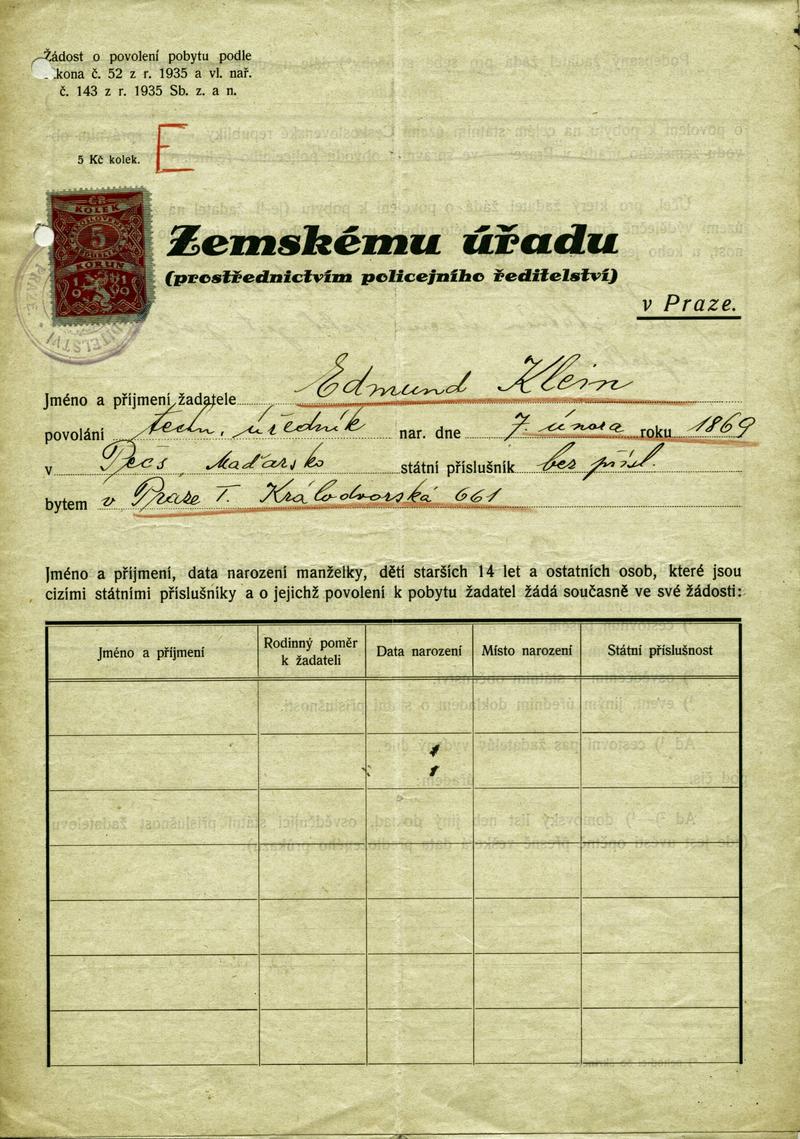 Žádost o povolení pobytu podle
kona č. 52 z r. 1935 a vl. nař.
č. 143 z r. 1935 Sb. z. a n.
E
5 Kč kolek.
KOLEK
5
KORUN
Zemskému úřadu
(prostřednictvím policejního ředitelství)
v Praze.
Jméno a příjmení žadatele Edmund Klein
povolání techn. úředník nar. dne 7. února roku 1869
v Pečs, Maďarsko státní příslušník bez přísl.
bytem v Praze I. Králodvorská 661
Jméno a příjmení, data narození manželky, dětí starších 14 let a ostatních osob, které jsou
cizími státními příslušníky a o jejichž povolení k pobytu žadatel žádá současně ve své žádosti:
Jméno a příjmení
Rodinný poměr
k žadateli
Data narození
Místo narození
Státní příslušnost